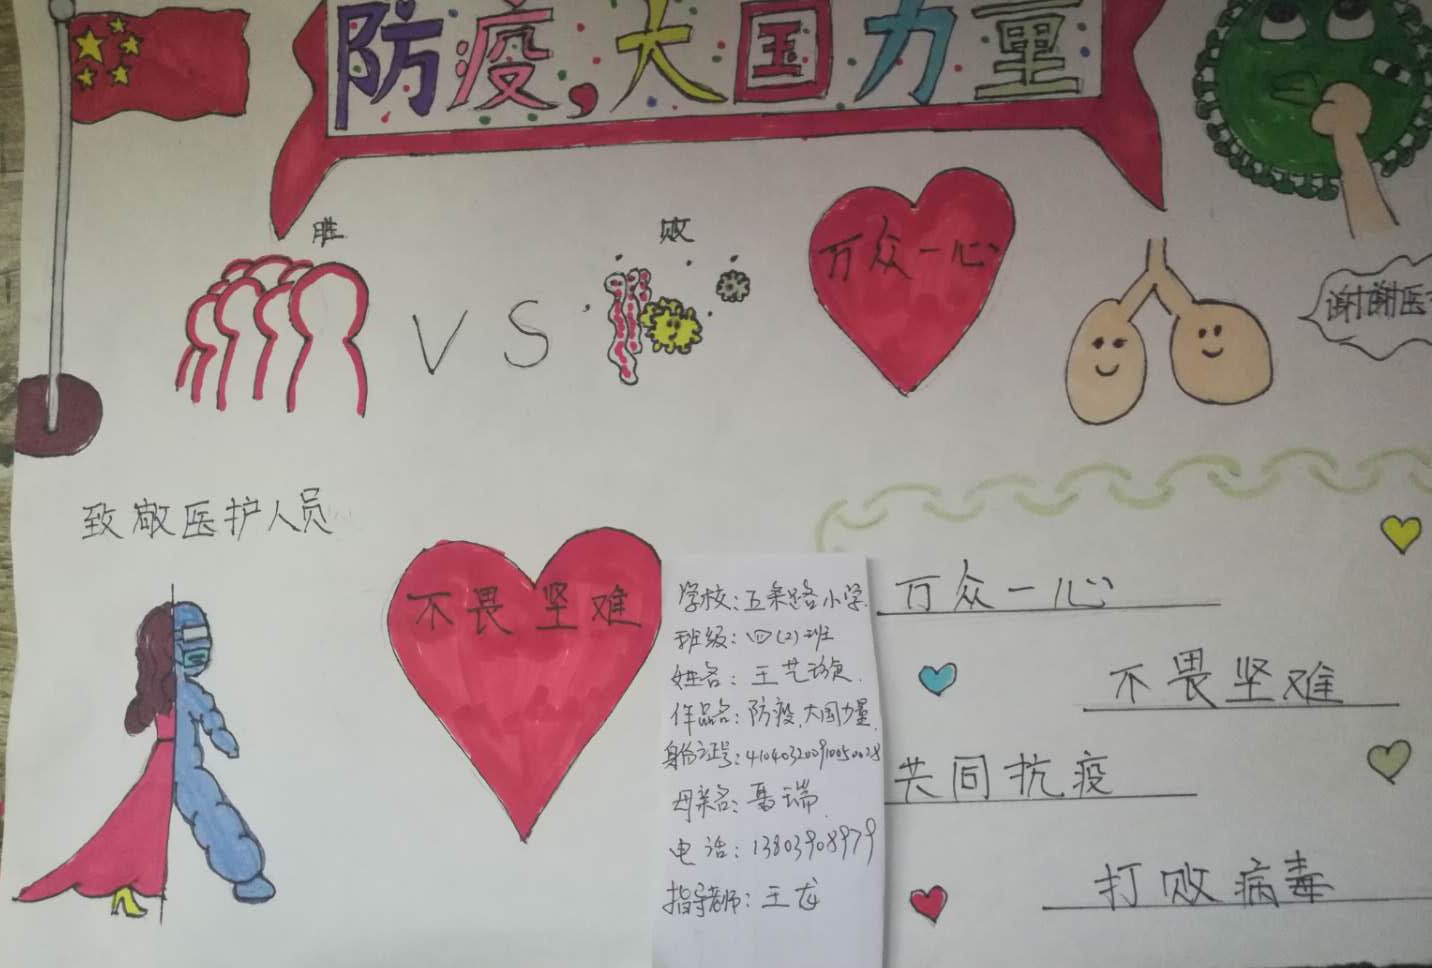 防疫,大国力量
胜
败
VS
万众一心
谢谢医
致敬医护人员
不畏坚难
学校:五条路小学
班级:四(2)班
姓名:王艺
作品名:防疫,大国力量
身份证号:410403200910050028
母亲名:聂瑞
电话:13803908979
指导老师:王龙
万众一心
不畏坚难
共同抗疫
打败病毒